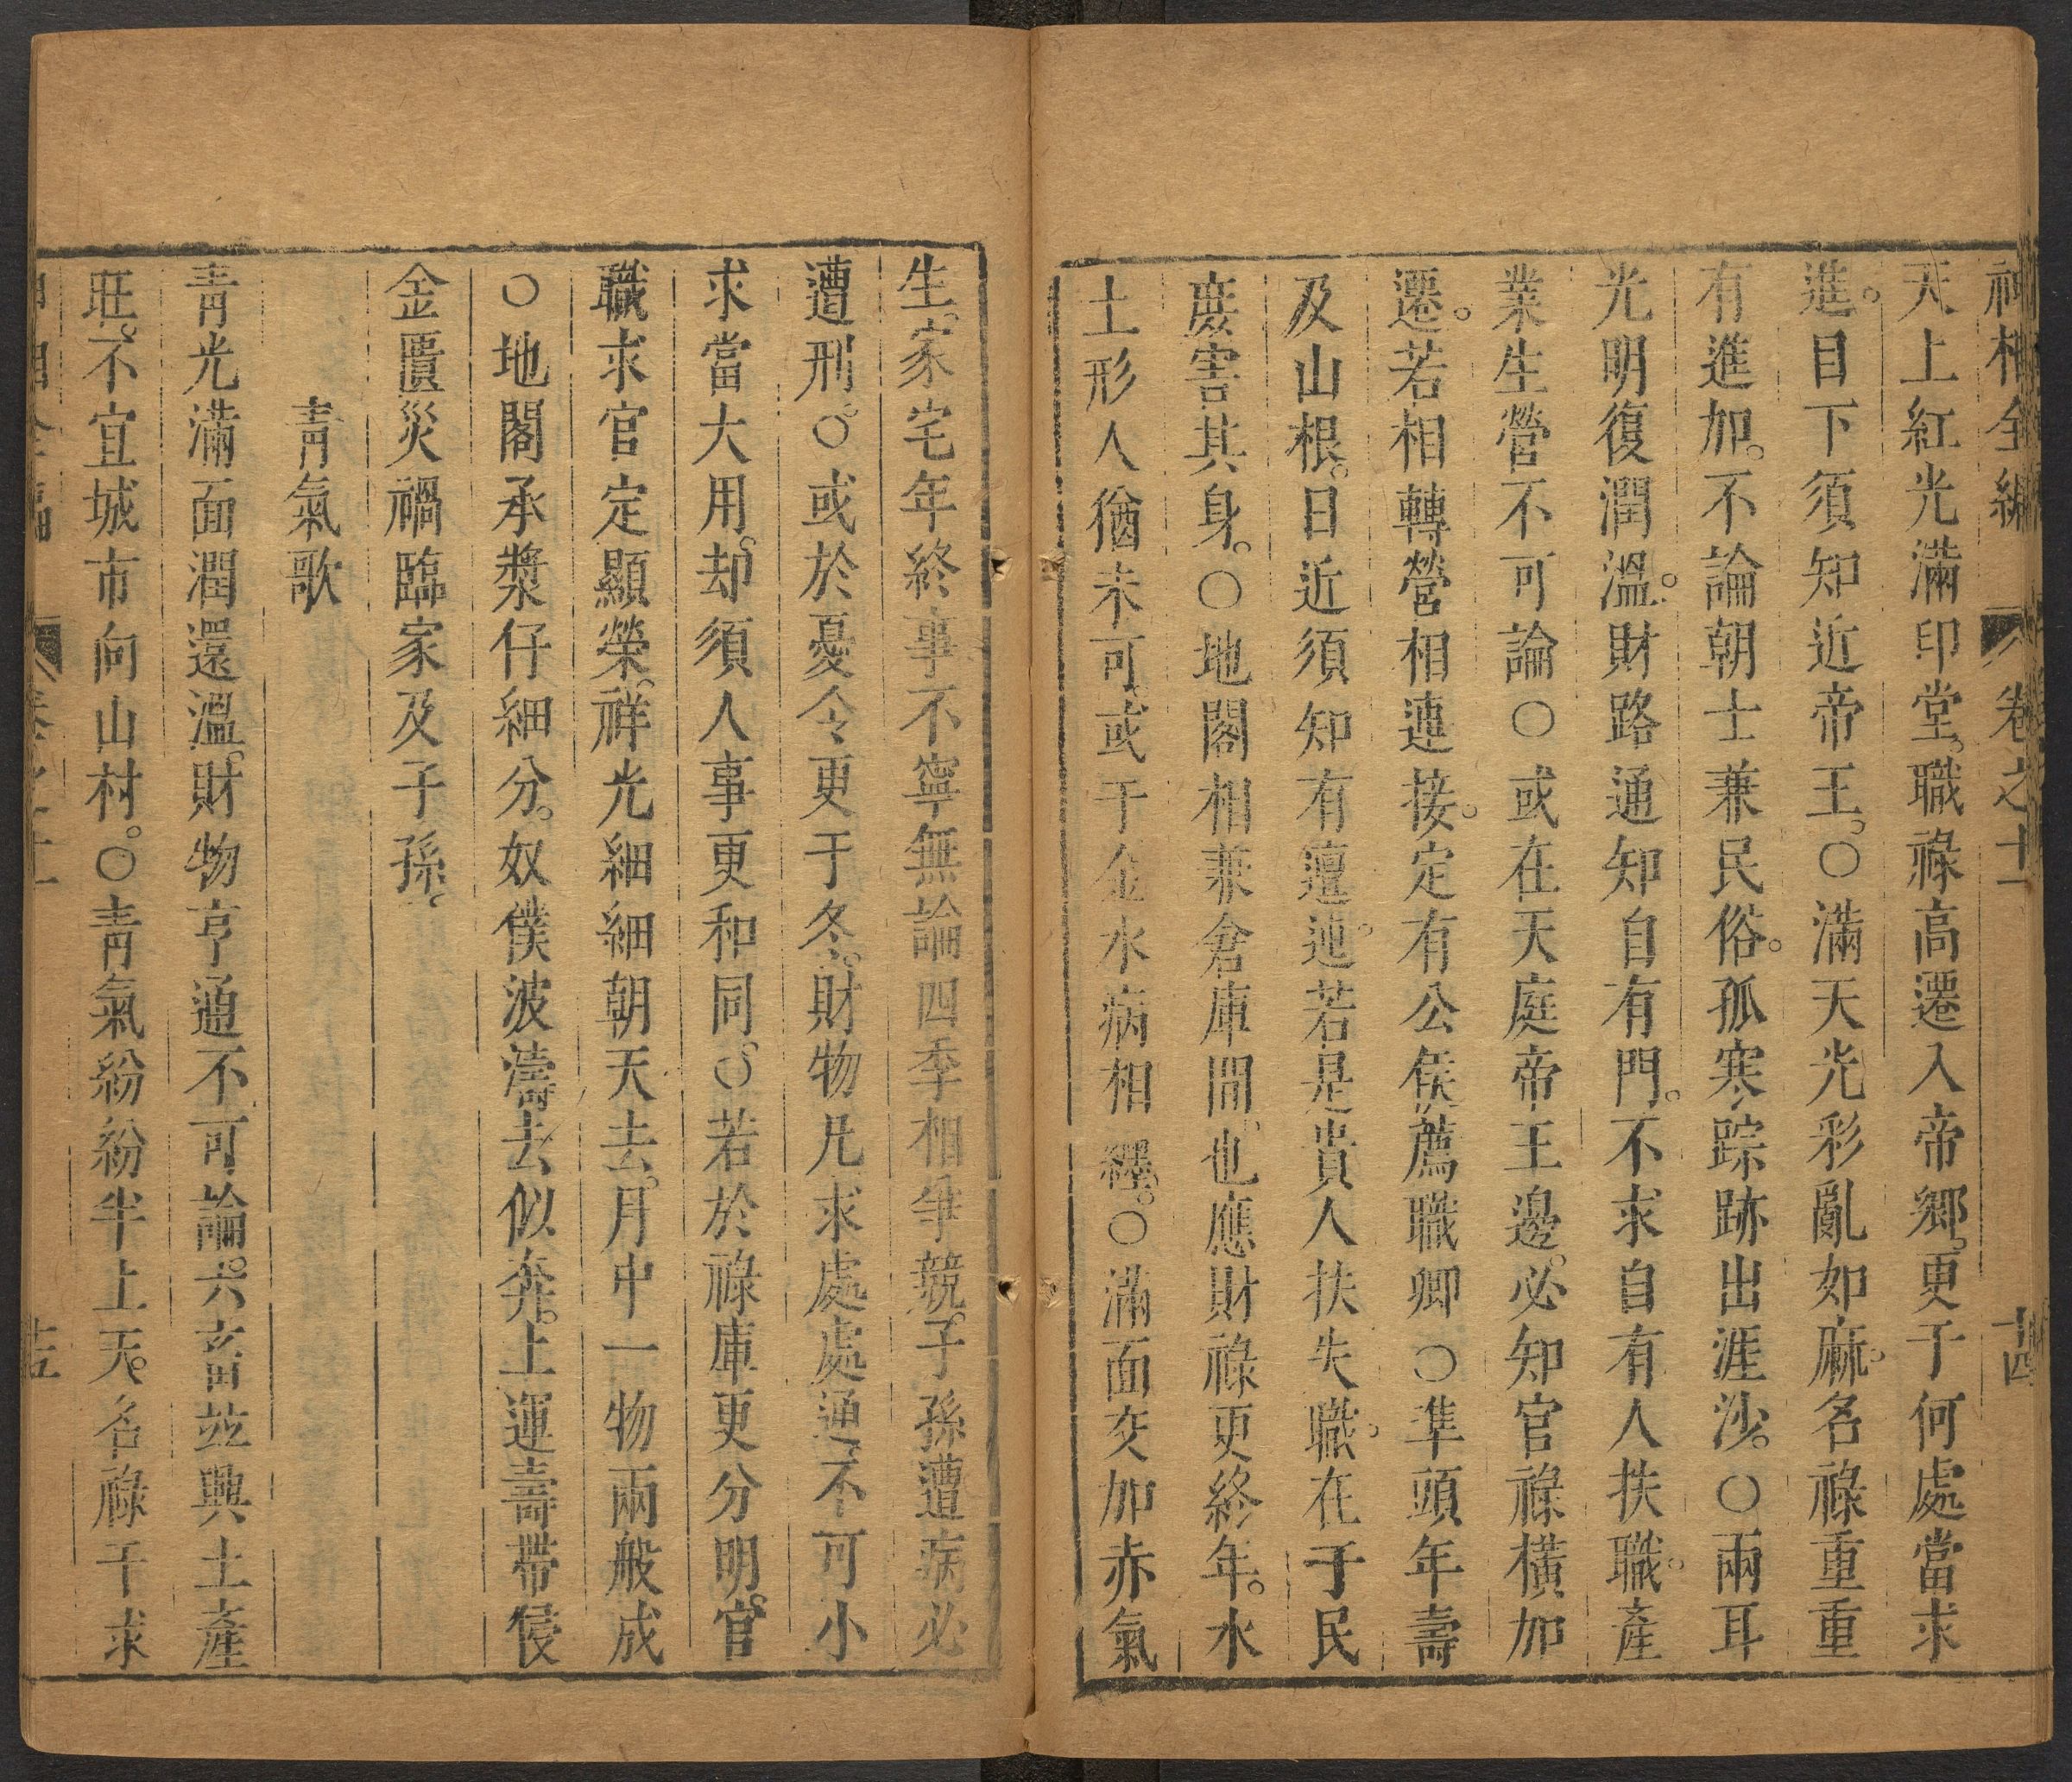 神相全編 卷之十一 十四
天上紅光滿印堂。職祿高遷入帝鄉。更于何處當求
進。目下須知近帝王。○滿天光彩亂如麻。名祿重重
有進加。不論朝士兼民俗。孤寒踪跡出涯沙。○兩耳
光明復潤溫。財路通知自有門。不求自有人扶職。產
業生營不可論○或在天庭帝王邊。必知官祿橫加
遷。若相轉營相連接。定有公侯薦職卿○準頭年壽
及山根。日近須知有邅迍。若是貴人扶失職。在于民
庶害其身。○地閣相兼倉庫間、也應財祿更終年。水
土形人猶未可。或于金水病相纒。○滿面交加赤氣
生。家宅年終事不寧無論四季相爭競。子孫遭病必
遭刑。○或於憂令更于冬。財物凡求處處通。不可小
求當大用。却須人事更和同。○若於祿庫更分明。官
職求官定顯榮。祥光細細朝天去。月中一物兩般成
○地閣承漿仔細分。奴僕波濤去似奔。土運壽帶侵
金匱災禍臨家及子孫。
青氣歌
青光滿面潤還溫。財物亨通不可論。六畜並興土產
旺。不宜城市向山村。○青氣紛紛半上天。名祿干求
十五